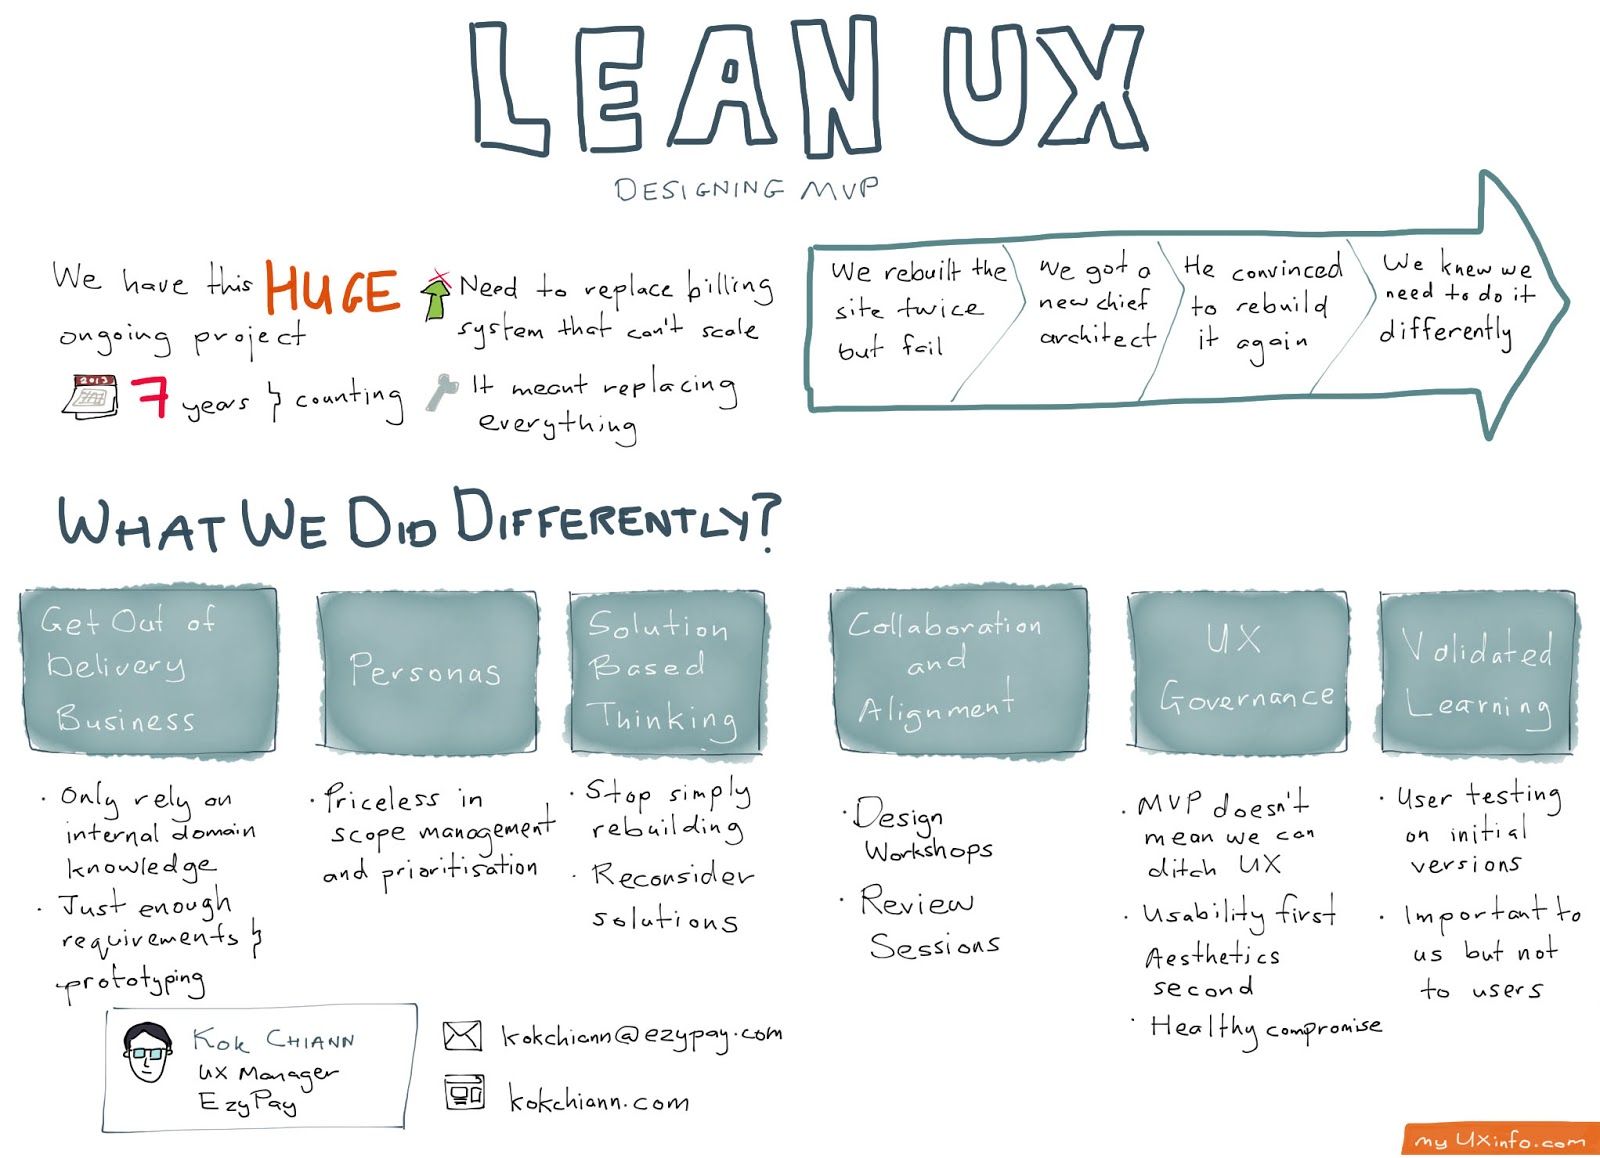 LEAN UX
DESIGNING MVP
We have this HUGE
ongoing project
2013
7 years & counting
Need to replace billing
system that can't scale
It meant replacing
everything
We rebuilt the
site twice
but fail
We got a
new chief
architect
He convinced
to rebuild
it again
We knew we
need to do it
differently
WHAT WE DID DIFFERENTLY?
Get Out of
Delivery
Business
· Only rely on
internal domain
knowledge
· Just enough
requirements &
prototyping
Personas
· Priceless in
scope management
and prioritisation
Solution
Based
Thinking
· Stop simply
rebuilding
· Reconsider
solutions
Collaboration
and
Alignment
· Design
Workshops
· Review
Sessions
UX
Governance
· MVP doesn't
mean we can
ditch UX
· Usability first
Aesthetics
second
· Healthy compromise
Validated
Learning
· User testing
on initial
versions
· Important to
us but not
to users
KOK CHIANN
UX Manager
EzyPay
kokchiann@ezypay.com
kokchiann.com
my UXinfo.com